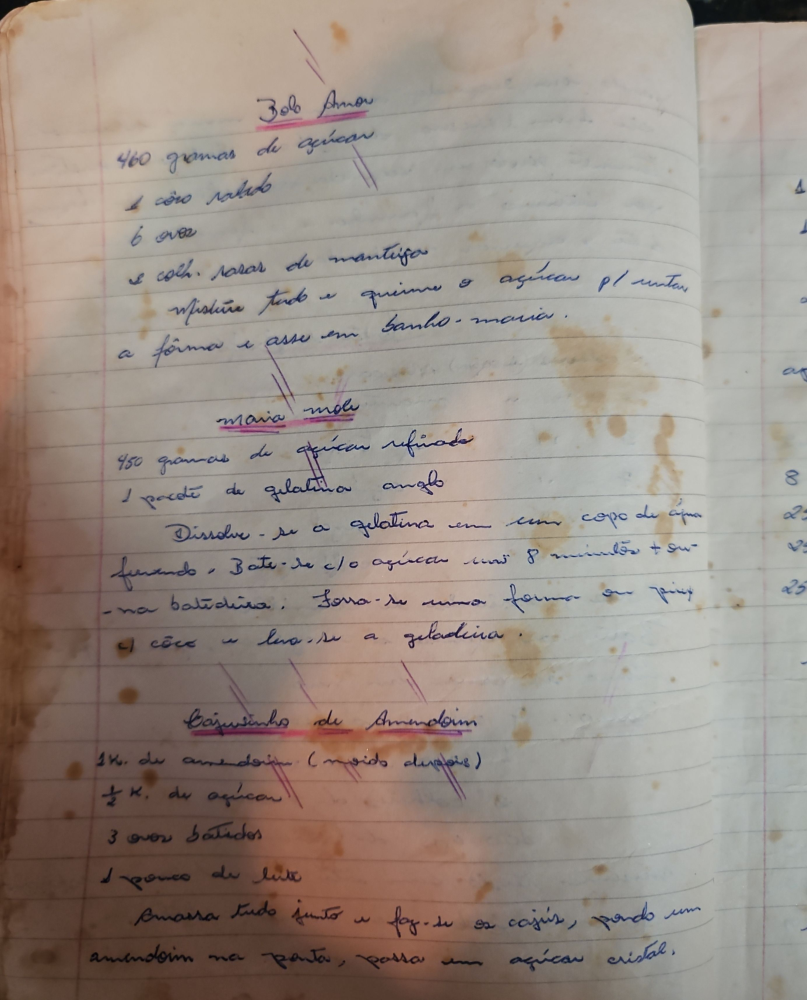 Bolo Amor
460 gramas de açúcar
1 côco ralado
6 ovos
2 colh. rasas de manteiga
Misture tudo e queime o açúcar p/ untar
a fôrma e asse em banho-maria.
Maria mole
450 gramas de açúcar refinado
1 pacote de gelatina anglo
Dissolve-se a gelatina em um copo de água
fervendo. Bate-se c/o açúcar uns 8 minutos + ou-
-na batedeira. Forra-se uma forma ou pirex
c/ côco e leva-se a geladeira.
Cajuzinho de Amendoim
1K. de amendoim (moido depois)
½ K. de açúcar
3 ovos batidos
1 pouco de leite
Amassa tudo junto e faz-se os cajús, pondo um
amendoim na ponta, passa em açúcar cristal.
1
8
25
25
25